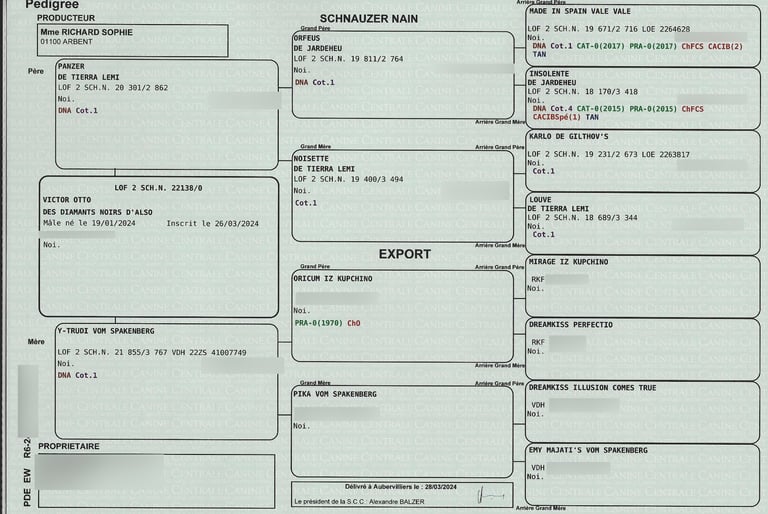 Pedigree
PRODUCTEUR
Mme RICHARD SOPHIE
01100 ARBENT
SCHNAUZER NAIN
Père
PANZER
DE TIERRA LEMI
LOF 2 SCH.N. 20 301/2 862
Noi.
DNA Cot.1
LOF 2 SCH.N. 22138/0
VICTOR OTTO
DES DIAMANTS NOIRS D'ALSO
Mâle né le 19/01/2024 Inscrit le 26/03/2024
Noi.
Mère
Y-TRUDI VOM SPAKENBERG
LOF 2 SCH.N. 21 855/3 767 VDH 22ZS 41007749
Noi.
DNA Cot.1
PROPRIETAIRE
PDE EW R6-2
Grand Père
ORFEUS
DE JARDEHEU
LOF 2 SCH.N. 19 811/2 764
Noi.
DNA Cot.1
Grand Mère
NOISETTE
DE TIERRA LEMI
LOF 2 SCH.N. 19 400/3 494
Noi.
Cot.1
EXPORT
Grand Père
ORICUM IZ KUPCHINO
Noi.
PRA-0(1970) ChO
Grand Mère
PIKA VOM SPAKENBERG
Noi.
Délivré à Aubervilliers le : 28/03/2024
Le président de la S.C.C.: Alexandre BALZER
Arrière Grand Père
MADE IN SPAIN VALE VALE
LOF 2 SCH.N. 19 671/2 716 LOE 2264628
Noi.
DNA Cot.1 CAT-0(2017) PRA-0(2017) ChFCS CACIB(2)
TAN
INSOLENTE
DE JARDEHEU
LOF 2 SCH.N. 18 170/3 418
Noi.
DNA Cot.4 CAT-0(2015) PRA-0(2015) ChFCS
CACIBSpé(1) TAN
Arrière Grand Mère
Arrière Grand Père
KARLO DE GILTHOV'S
LOF 2 SCH.N. 19 231/2 673 LOE 2263817
Noi.
Cot.1
LOUVE
DE TIERRA LEMI
LOF 2 SCH.N. 18 689/3 344
Noi.
Cot.1
Arrière Grand Mère
Arrière Grand Père
MIRAGE IZ KUPCHINO
RKF
Noi.
DREAMKISS PERFECTIO
RKF
Noi.
Arrière Grand Mère
Arrière Grand Père
DREAMKISS ILLUSION COMES TRUE
VDH
Noi.
EMY MAJATI'S VOM SPAKENBERG
VDH
Noi.
Arrière Grand Mère